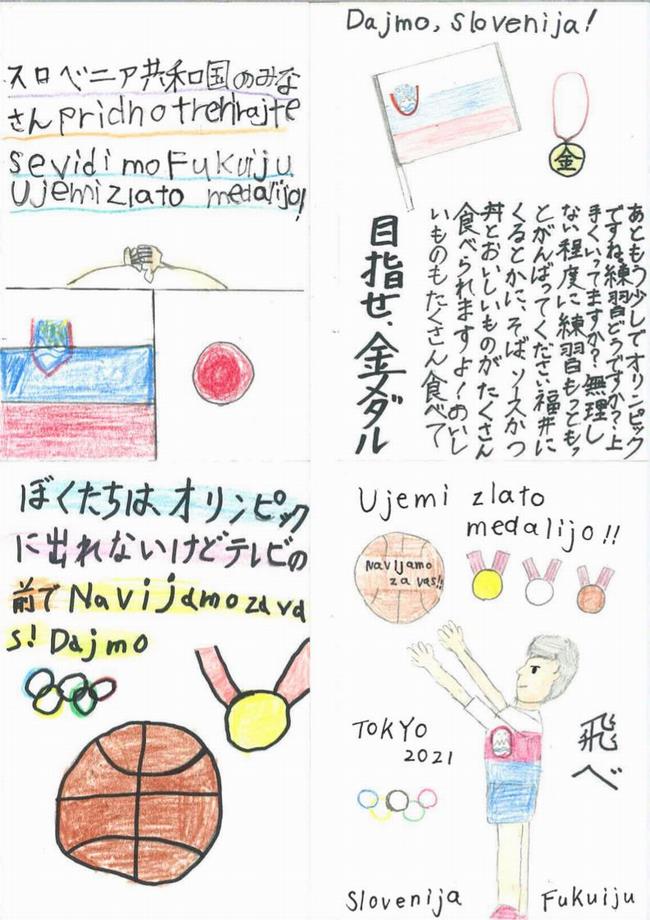 スロベニア共和国のみな
さんpridnotrenirajte
se vidimo Fukuiju
Ujemi zlato medalijo!
Dajmo, Slovenija!
金
あともう少しでオリンピック
ですね練習どうですか?上
手くいってますか?無理し
ない程度に練習もっともっ
とがんばってください福井に
くるとかに、そば、ソースかつ
丼とおいしいものがたくさん
食べられますよ!おいし
いものもたくさん食べて
目指せ、金メダル
ぼくたちは、オリンピック
に出れないけどテレビの
前でNavijamo za va
s! Dajmo
Ujemi zlato
medalijo!!
Navijamo
za vas!!
TOKYO
2021
飛べ
Slovenija
Fukuiju